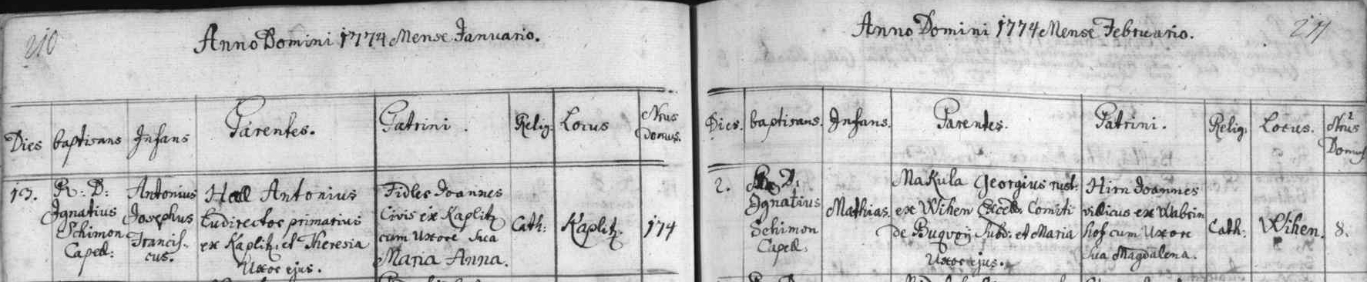 210
Anno Domini 1774 Mense Januario.
Dies baptisans Infans Parentes. Patrini. Relig: Locus Nrus Domus.
13.
R: D: Ignatius Schimon Capell:
Antonius Josephus Francis-cus.
Hall Antonius
Ludirector primarius
ex Kaplitz, et Theresia
Uxor ejus.
Fidler Joannes
Civis ex Kaplitz
cum Uxore sua
Maria Anna.
Cath:
Kaplitz
174
211
Anno Domini 1774 Mense Februario.
Dies. baptisans. Infans. Parentes. Patrini. Relig: Locus. Nrus Domus
2.
R. D. Ignatius Schimon Capell:
Mathias.
Makula Georgius rust:
ex Wihen Comiti
de Buquoy Subd: et Maria
Uxor ejus.
Hirn Joannes
villicus ex
hof cum Uxore
sua Magdalena.
Cath:
Wihen.
8.